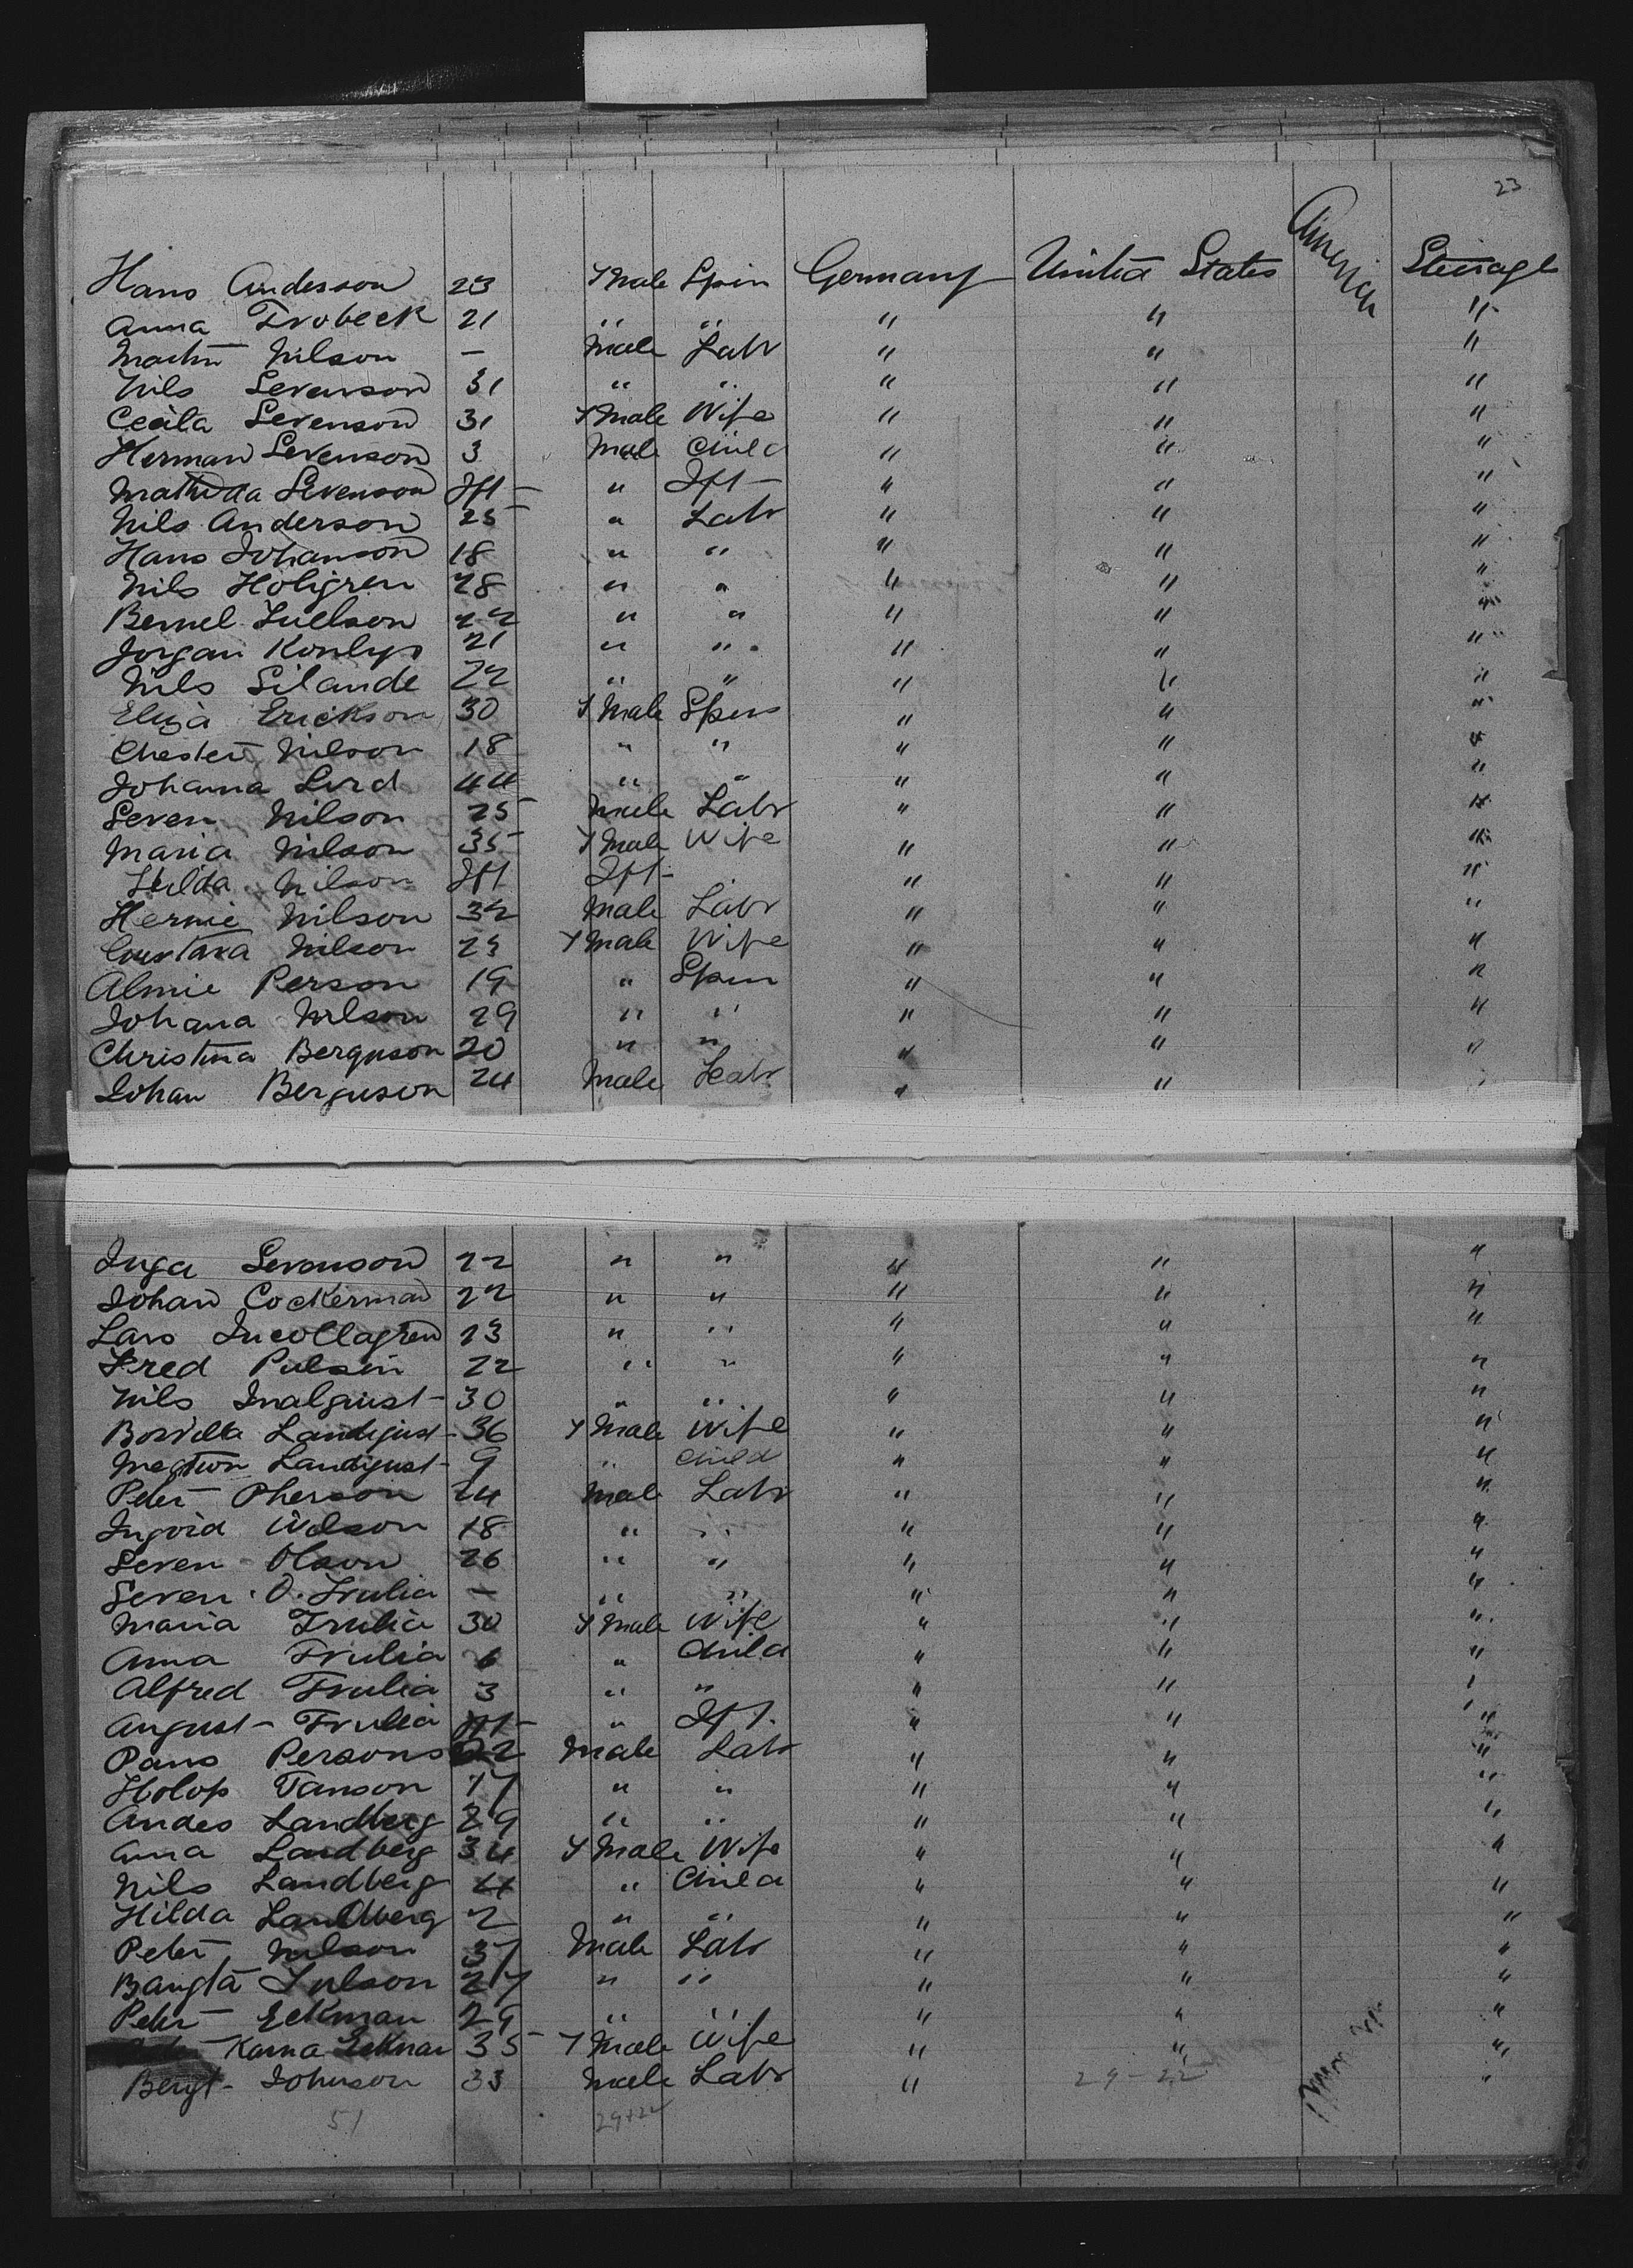 23
Hans Andersson 23 Fmale Spin Germany United States American Steerage
Anna Frobeck 21 " " " " "
Martin Nilson — Male Labr " " "
Nils Levenson 31 " " " " "
Cecila Levenson 31 Fmale Wife " " "
Herman Levenson 3 Male Child " " "
Mathilda Levenson Ift — " Ift — " " "
Nils Anderson 25 " Labr " " "
Hans Johanson 18 " " " " "
Nils Holigren 28 " " " " "
Bernel 22 " " " " "
Jorgan 21 " " " " "
Nils Silande 22 " " " " "
Eliza Erickson 30 Fmale Spin " " "
Chester Nilson 18 " " " " "
Johanna Lurd 44 " " " " "
Seven Nilson 25 Male Labr " " "
Maria Nilson 35 Fmale Wife " " "
Hilda Nilson Ift Ift — " " "
Hernie Nilson 32 Male Labr " " "
Gustava Nilson 23 Fmale Wife " " "
Almie Person 19 " Spin " " "
Johana Nilson 29 " " " " "
Christina Berguson 20 " " " " "
Johan Berguson 24 Male Labr " " "
Inga Levenson 22 " " " " "
Johan Cockerman 22 " " " " "
Lars 23 " " " " "
Fred Pulsin 22 " " " " "
Nils 30 " " " " "
Landqust — 36 Fmale Wife " " "
Landqust — 9 " Child " " "
Peter Pherson 24 Male Labr " " "
Ingvid Wilson 18 " " " " "
Seven Olson 26 " " " " "
Seven O. Frulia — " " " " "
Maria Frulia 30 Fmale Wife " " "
Anna Frulia 6 " Child " " "
Alfred Frulia 3 " " " " "
August — Frulia Ift — " Ift. " " "
Pans Persons 22 Male Labr " " "
Holop Tanson 17 " " " " "
Andes Landberg 29 " " " " "
Anna Landberg 34 Fmale Wife " " "
Nils Landberg 4 " Child " " "
Hilda Landberg 2 " " " " "
Peter Nilson 37 Male Labr " " "
Bangta 27 " " " " "
Peter Eckman 29 " " " " "
Karna Eckman 35 Fmale Wife " " "
Bengt — Johnson 33 Male Labr " 29-22 "
51 29+22